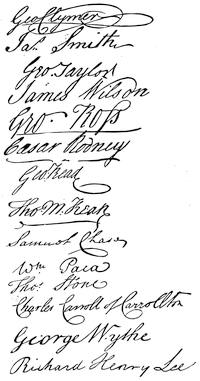 Geo Clymer
Jas. Smith
Geo. Taylor
James Wilson
Geo. Ross
Caesar Rodney
Geo Read
Tho M. Kean
Samuel Chase
Wm. Paca
Thos. Stone
Charles Carroll of Carrollton
George Wythe
Richard Henry Lee